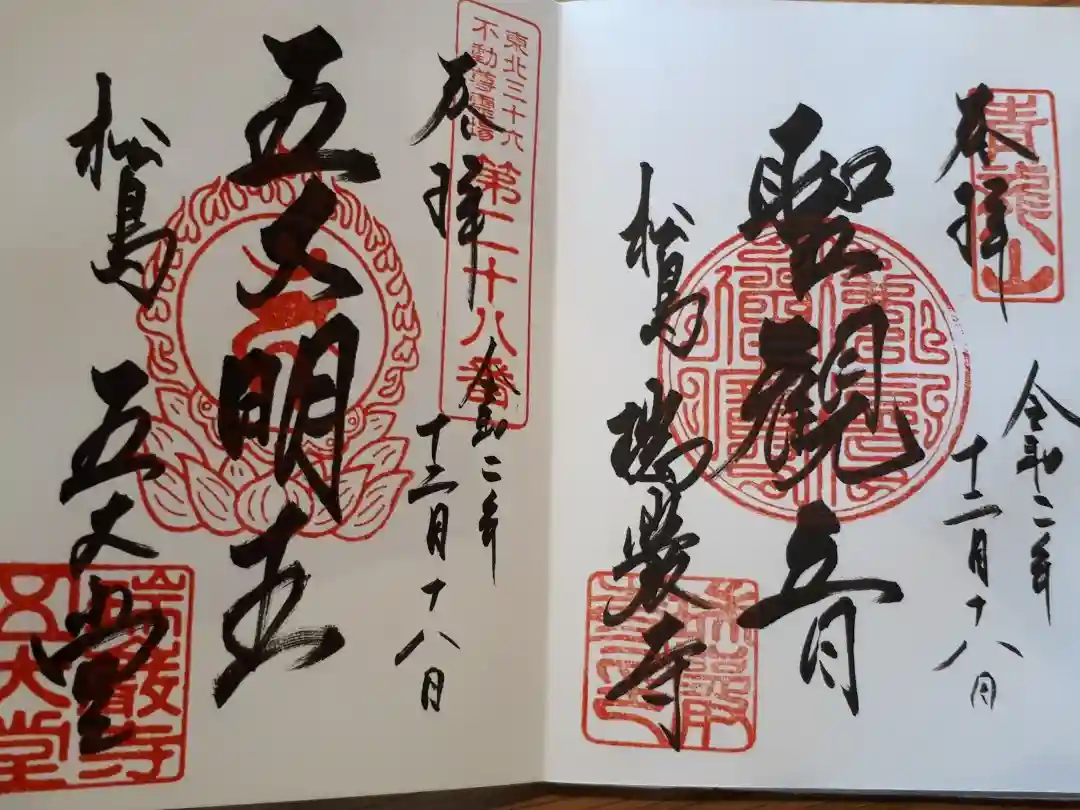 奉拝
青龍山
令和二年
十二月十八日
聖観音
松島 瑞巌寺
東北三十六
不動尊霊場
第二十八番
奉拝
令和二年
十二月十八日
五大明王
松島 五大堂
瑞巖寺
五大堂